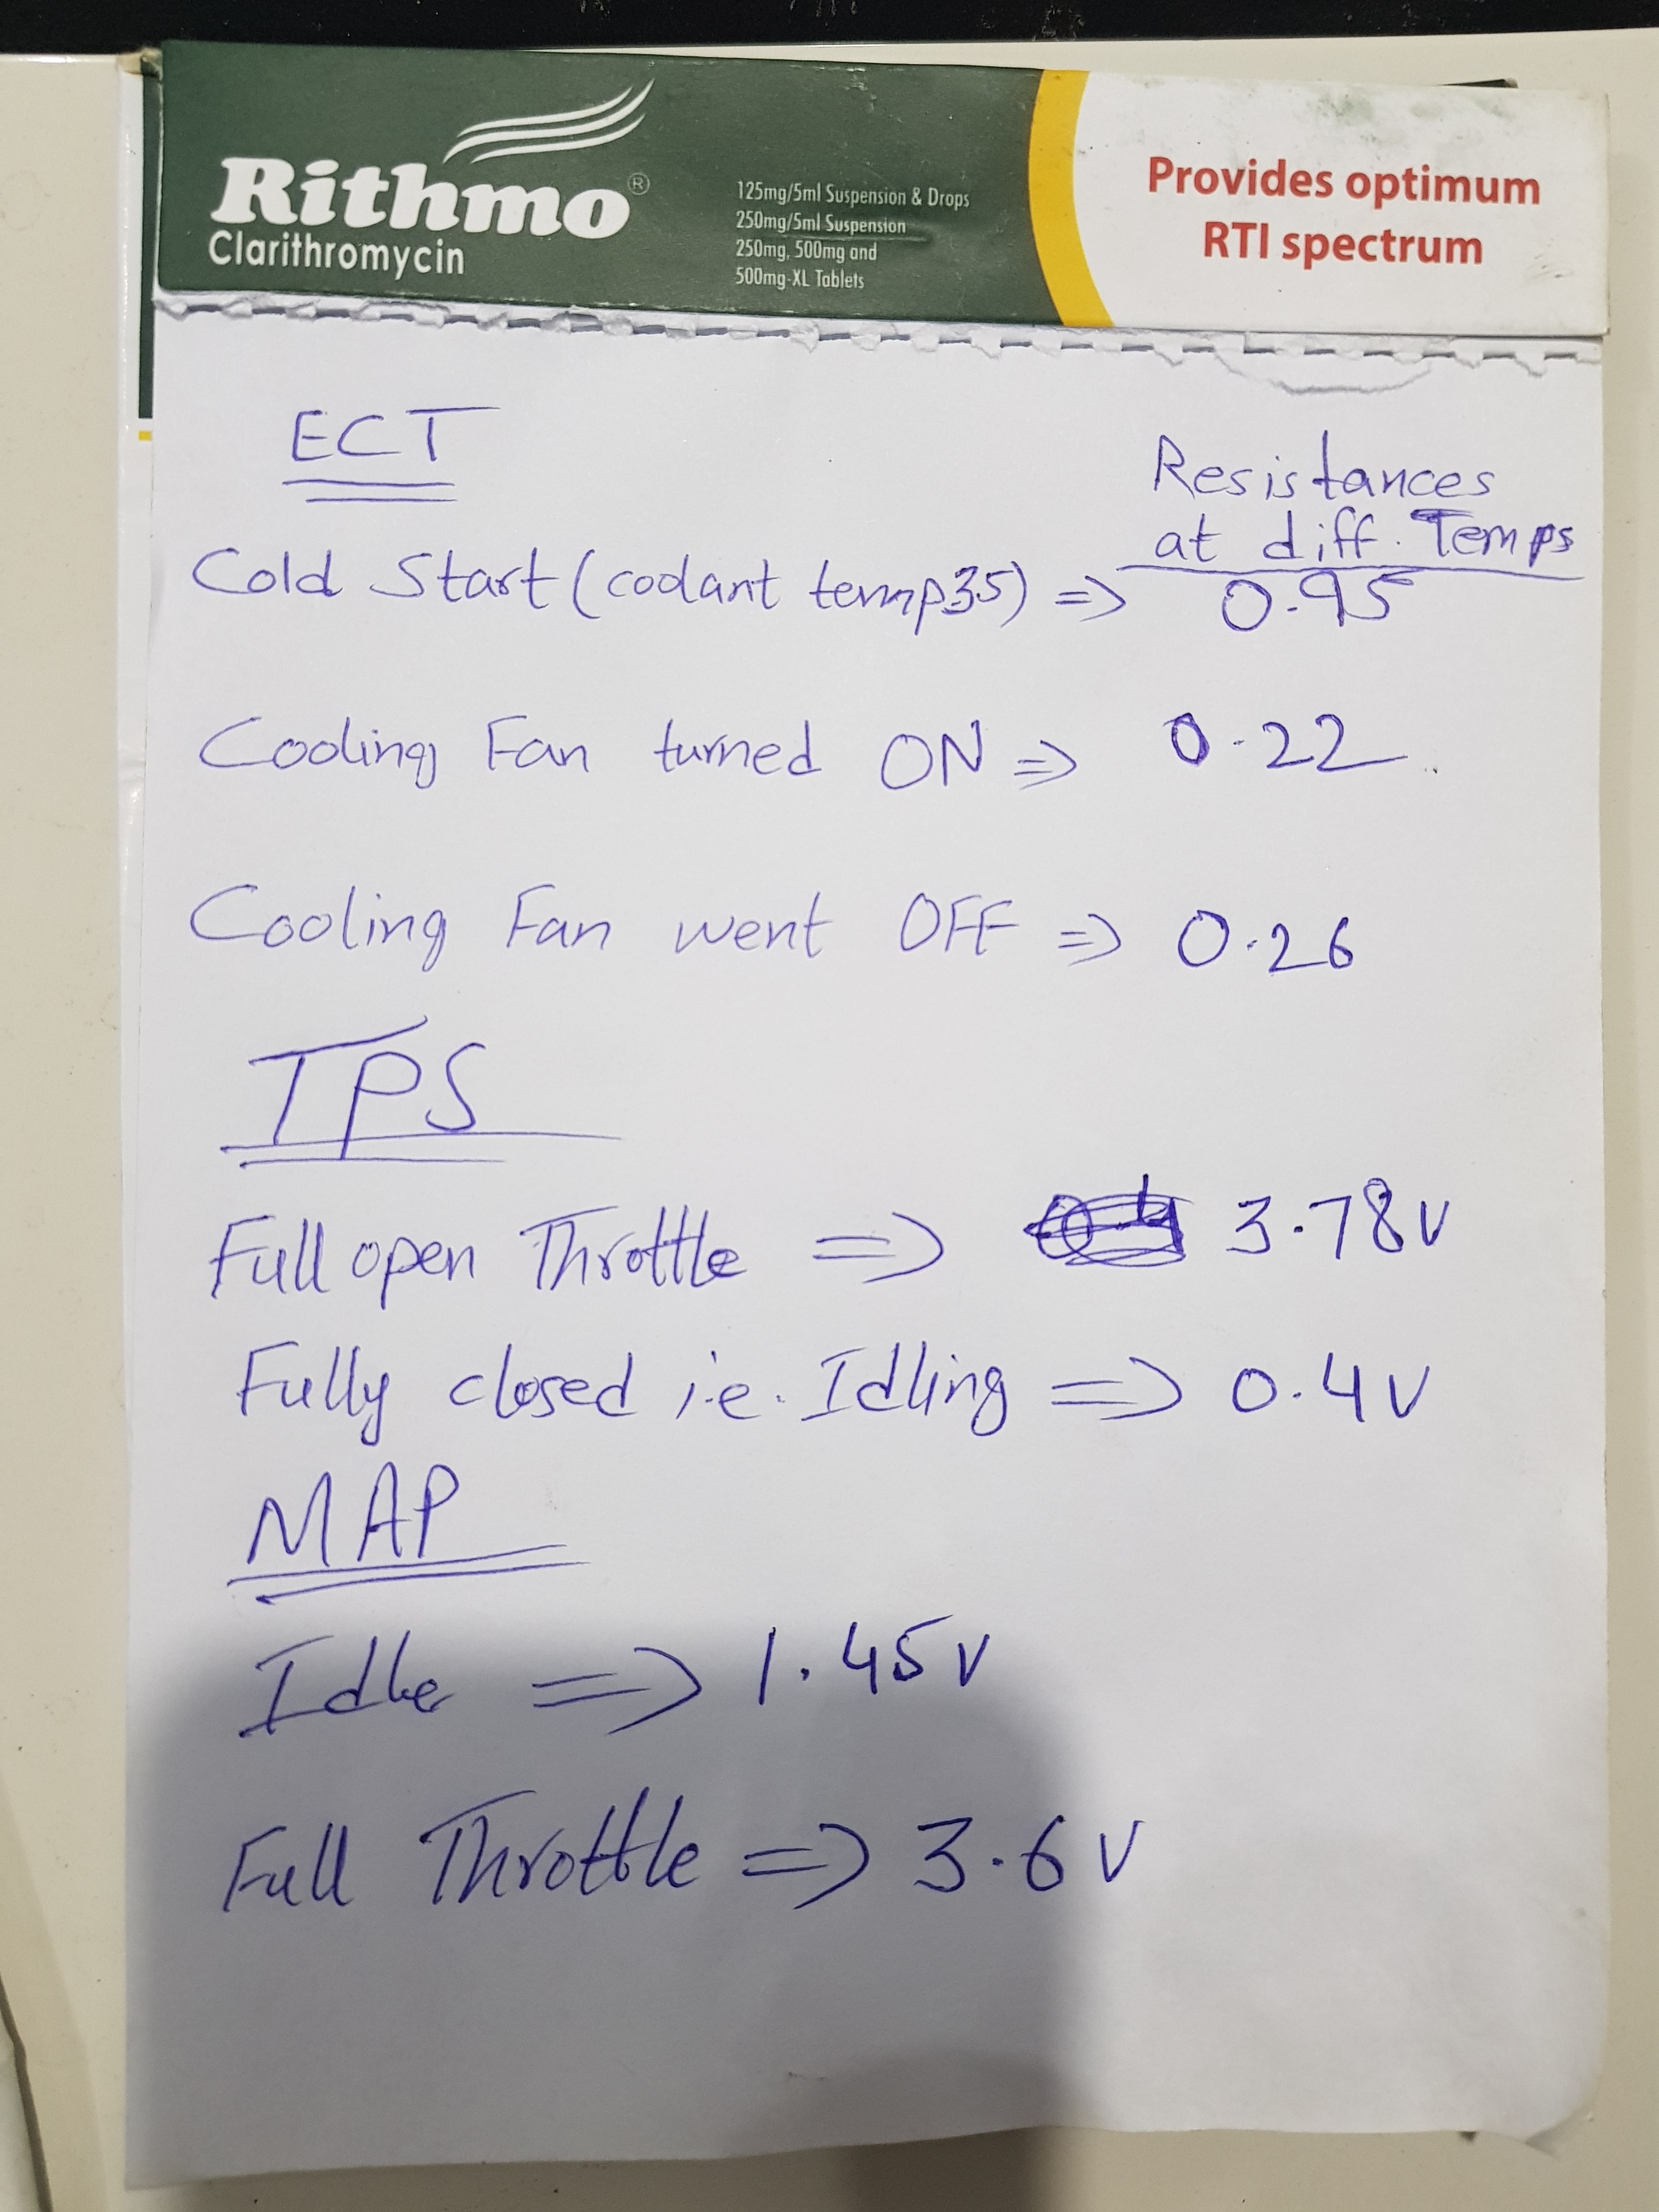 Rithmo®
Clarithromycin
125mg/5ml Suspension & Drops
250mg/5ml Suspension
250mg, 500mg and
500mg-XL Tablets
Provides optimum
RTI spectrum
ECT
Resistances
at diff. Temps
Cold Start (coolant temp 35) => 0.95
Cooling Fan turned ON => 0.22
Cooling Fan went OFF => 0.26
TPS
Full open Throttle => 3.78V
Fully closed i.e. Idling => 0.4V
MAP
Idle => 1.45V
Full Throttle => 3.6V